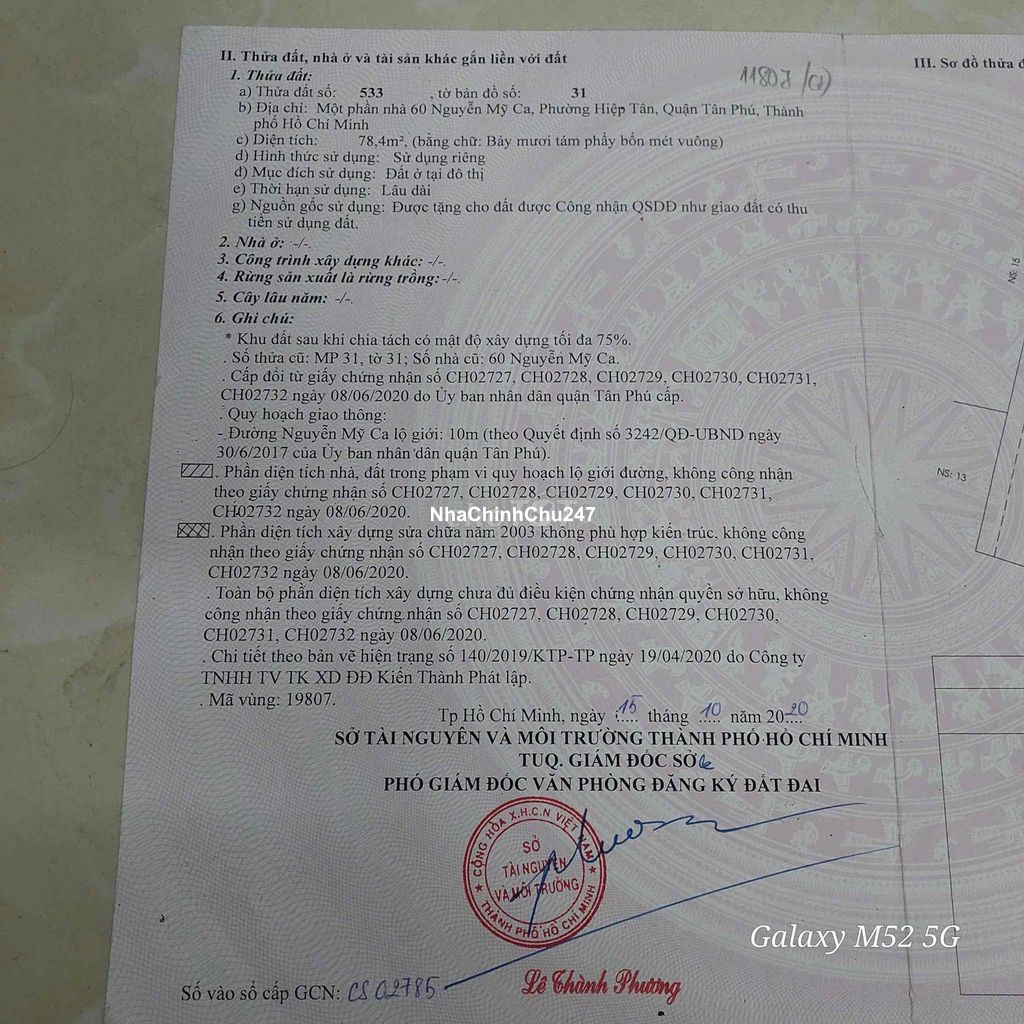 II. Thửa đất, nhà ở và tài sản khác gắn liền với đất
1. Thửa đất:
a) Thửa đất số: 533 , tờ bản đồ số: 31
b) Địa chỉ: Một phần nhà 60 Nguyễn Mỹ Ca, Phường Hiệp Tân, Quận Tân Phú, Thành
phố Hồ Chí Minh
c) Diện tích: 78,4m², (bằng chữ: Bảy mươi tám phẩy bốn mét vuông)
d) Hình thức sử dụng: Sử dụng riêng
đ) Mục đích sử dụng: Đất ở tại đô thị
e) Thời hạn sử dụng: Lâu dài
g) Nguồn gốc sử dụng: Được tặng cho đất được Công nhận QSDĐ như giao đất có thu
tiền sử dụng đất.
2. Nhà ở: -/-.
3. Công trình xây dựng khác: -/-.
4. Rừng sản xuất là rừng trồng: -/-.
5. Cây lâu năm: -/-.
6. Ghi chú:
* Khu đất sau khi chia tách có mật độ xây dựng tối đa 75%.
. Số thửa cũ: MP 31, tờ 31; Số nhà cũ: 60 Nguyễn Mỹ Ca.
. Cấp đổi từ giấy chứng nhận số CH02727, CH02728, CH02729, CH02730, CH02731,
CH02732 ngày 08/06/2020 do Ủy ban nhân dân quận Tân Phú cấp.
. Quy hoạch giao thông:
- Đường Nguyễn Mỹ Ca lộ giới: 10m (theo Quyết định số 3242/QĐ-UBND ngày
30/6/2017 của Ủy ban nhân dân quận Tân Phú).
. Phần diện tích nhà, đất trong phạm vi quy hoạch lộ giới đường, không công nhận
theo giấy chứng nhận số CH02727, CH02728, CH02729, CH02730, CH02731,
CH02732 ngày 08/06/2020.
NhaChinhChu247
. Phần diện tích xây dựng sửa chữa năm 2003 không phù hợp kiến trúc, không công
nhận theo giấy chứng nhận số CH02727, CH02728, CH02729, CH02730, CH02731,
CH02732 ngày 08/06/2020.
. Toàn bộ phần diện tích xây dựng chưa đủ điều kiện chứng nhận quyền sở hữu, không
công nhận theo giấy chứng nhận số CH02727, CH02728, CH02729, CH02730,
CH02731, CH02732 ngày 08/06/2020.
. Chi tiết theo bản vẽ hiện trạng số 140/2019/KTP-TP ngày 19/04/2020 do Công ty
TNHH TV TK XD ĐĐ Kiến Thành Phát lập.
. Mã vùng: 19807.
Tp Hồ Chí Minh, ngày 15 tháng 10 năm 2020
SỞ TÀI NGUYÊN VÀ MÔI TRƯỜNG THÀNH PHỐ HỒ CHÍ MINH
TUQ. GIÁM ĐỐC SỞ
PHÓ GIÁM ĐỐC VĂN PHÒNG ĐĂNG KÝ ĐẤT ĐAI
CỘNG HÒA X.H.C.N VIỆT NAM
SỞ
TÀI NGUYÊN
VÀ MÔI TRƯỜNG
THÀNH PHỐ HỒ CHÍ MINH
Lê Thành Phương
Số vào sổ cấp GCN: CS 02785
III. Sơ đồ thửa đ
NS: 15
NS: 13
Galaxy M52 5G